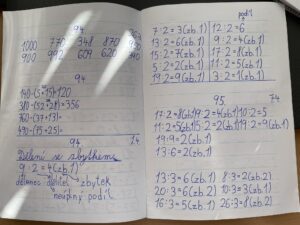 94
1000 770 348 870
900 992 609 620
94
140-(5·15)=120
380-(52-28)=356
760-(37+13)=
490-(75-25)=
94
Dělení se zbytkem
9 : 2 = 4(zb.1)
dělenec dělitel zbytek
neúplný podíl
podíl
7:2=3(zb.1) 12:2=6
13:2=6(zb.1) 9:2=4(zb.1)
15:2=7(zb.1) 17:2=8(zb.1)
5:2=2(zb.1) 11:2=5(zb.1)
19:2=9(zb.1) 3:2=1(zb.1)
95.
17:2=8(zb.1) 9:2=4(zb.1) 10:2=5
11:2=5(zb.1) 5:2=2(zb.1) 19:2=9(zb.1)
13:2=6(zb.1)
13:3=4(zb.1) 8:3=2(zb.2)
20:3=6(zb.2) 10:3=3(zb.1)
16:3=5(zb.1) 26:3=8(zb.2)